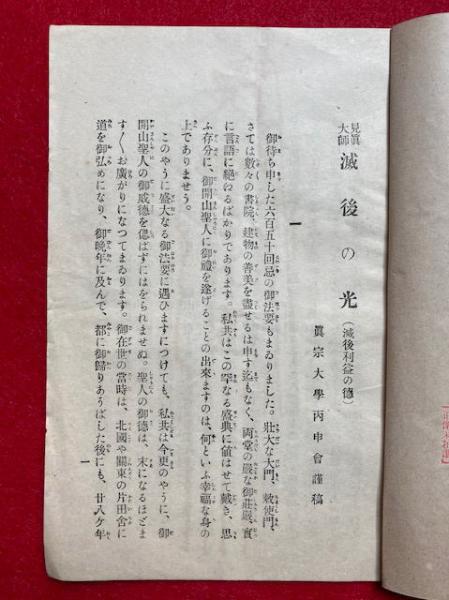 見眞大師 滅後の光(滅後利益の德)
眞宗大學丙申會謹稿
一
御待ち申した六百五十回忌の御法要もまゐりました。壯大な大門、敕使門、
さては數々の書院、建物の善美を盡せるは申す迄もなく、兩堂の嚴な御莊嚴、實
に言語に絶ゆるばかりであります。私共はこの罕なる盛典に値はせて戴き、思
ふ存分に、御開山聖人に御禮を遂げることの出來ますのは、何といふ幸福な身の
上でありませう。
このやうに盛大なる御法要に遇ひますにつけても、私共は今更のやうに、御
開山聖人の御威德を偲ばずにはをられませぬ。聖人の御德は、末になるほどま
す〱お廣がりになつてまゐります。御在世の當時は、北國や關東の片田舍に
道を御弘めになり、御晩年に及んで、都に御歸りあらばした後にも、廿八ケ年
一